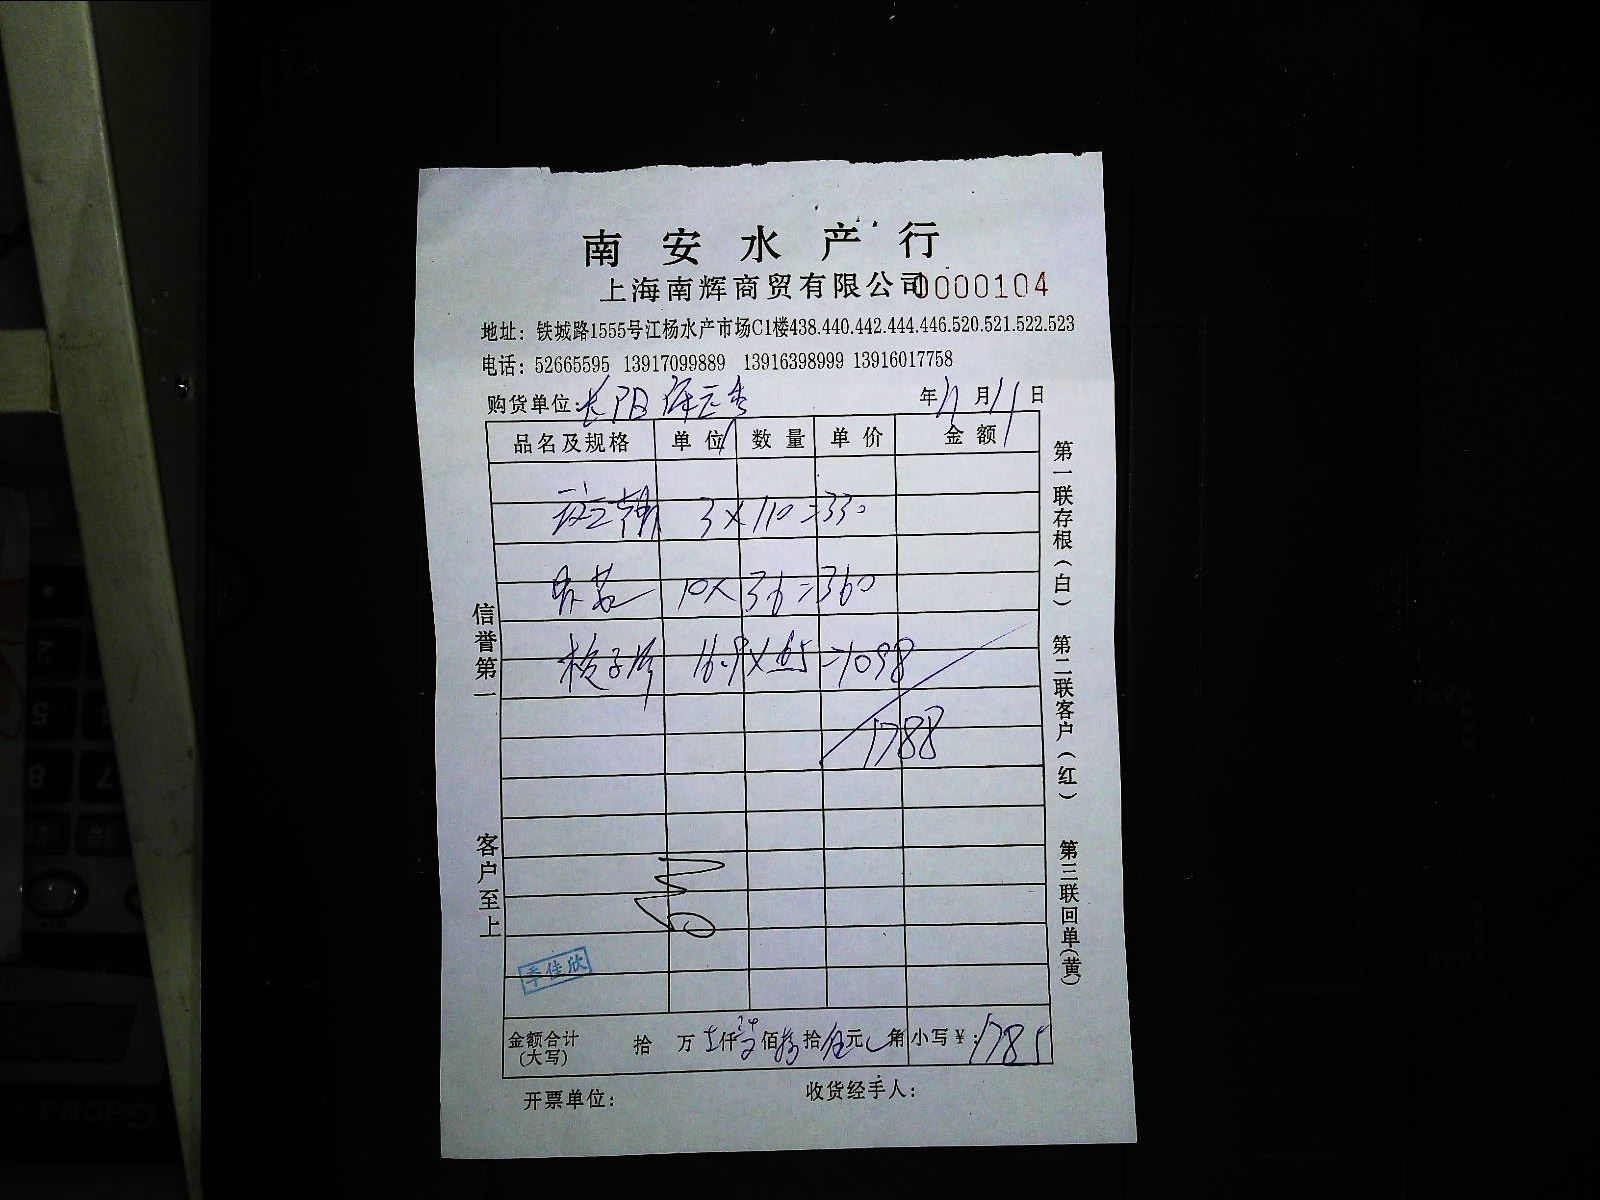 南安水产行
上海南辉商贸有限公司 0000104
地址：铁城路1555号江杨水产市场C1楼438.440.442.444.446.520.521.522.523
电话：52665595 13917099889 13916398999 13916017758
购货单位：长阳 年11月11日
品名及规格 单位 数量 单价 金额
3×110=330
10×36=360
梭子 16.9×65=1098
1788
季佳欣
金额合计(大写) 拾 万 仟 佰 拾 伍元 角 小写￥：1785
开票单位： 收货经手人：
信誉第一
客户至上
第一联存根（白）
第二联客户（红）
第三联回单(黄)